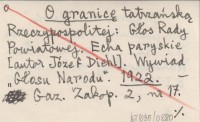 O granicę tatrzańską
Rzeczypospolitej: Głos Rady
Powiatowej. Echa paryskie
[autor Józef Diehl]. Wywiad
„Głosu Narodu". 1922. -
Gaz. Zakop. 2, nr 17.